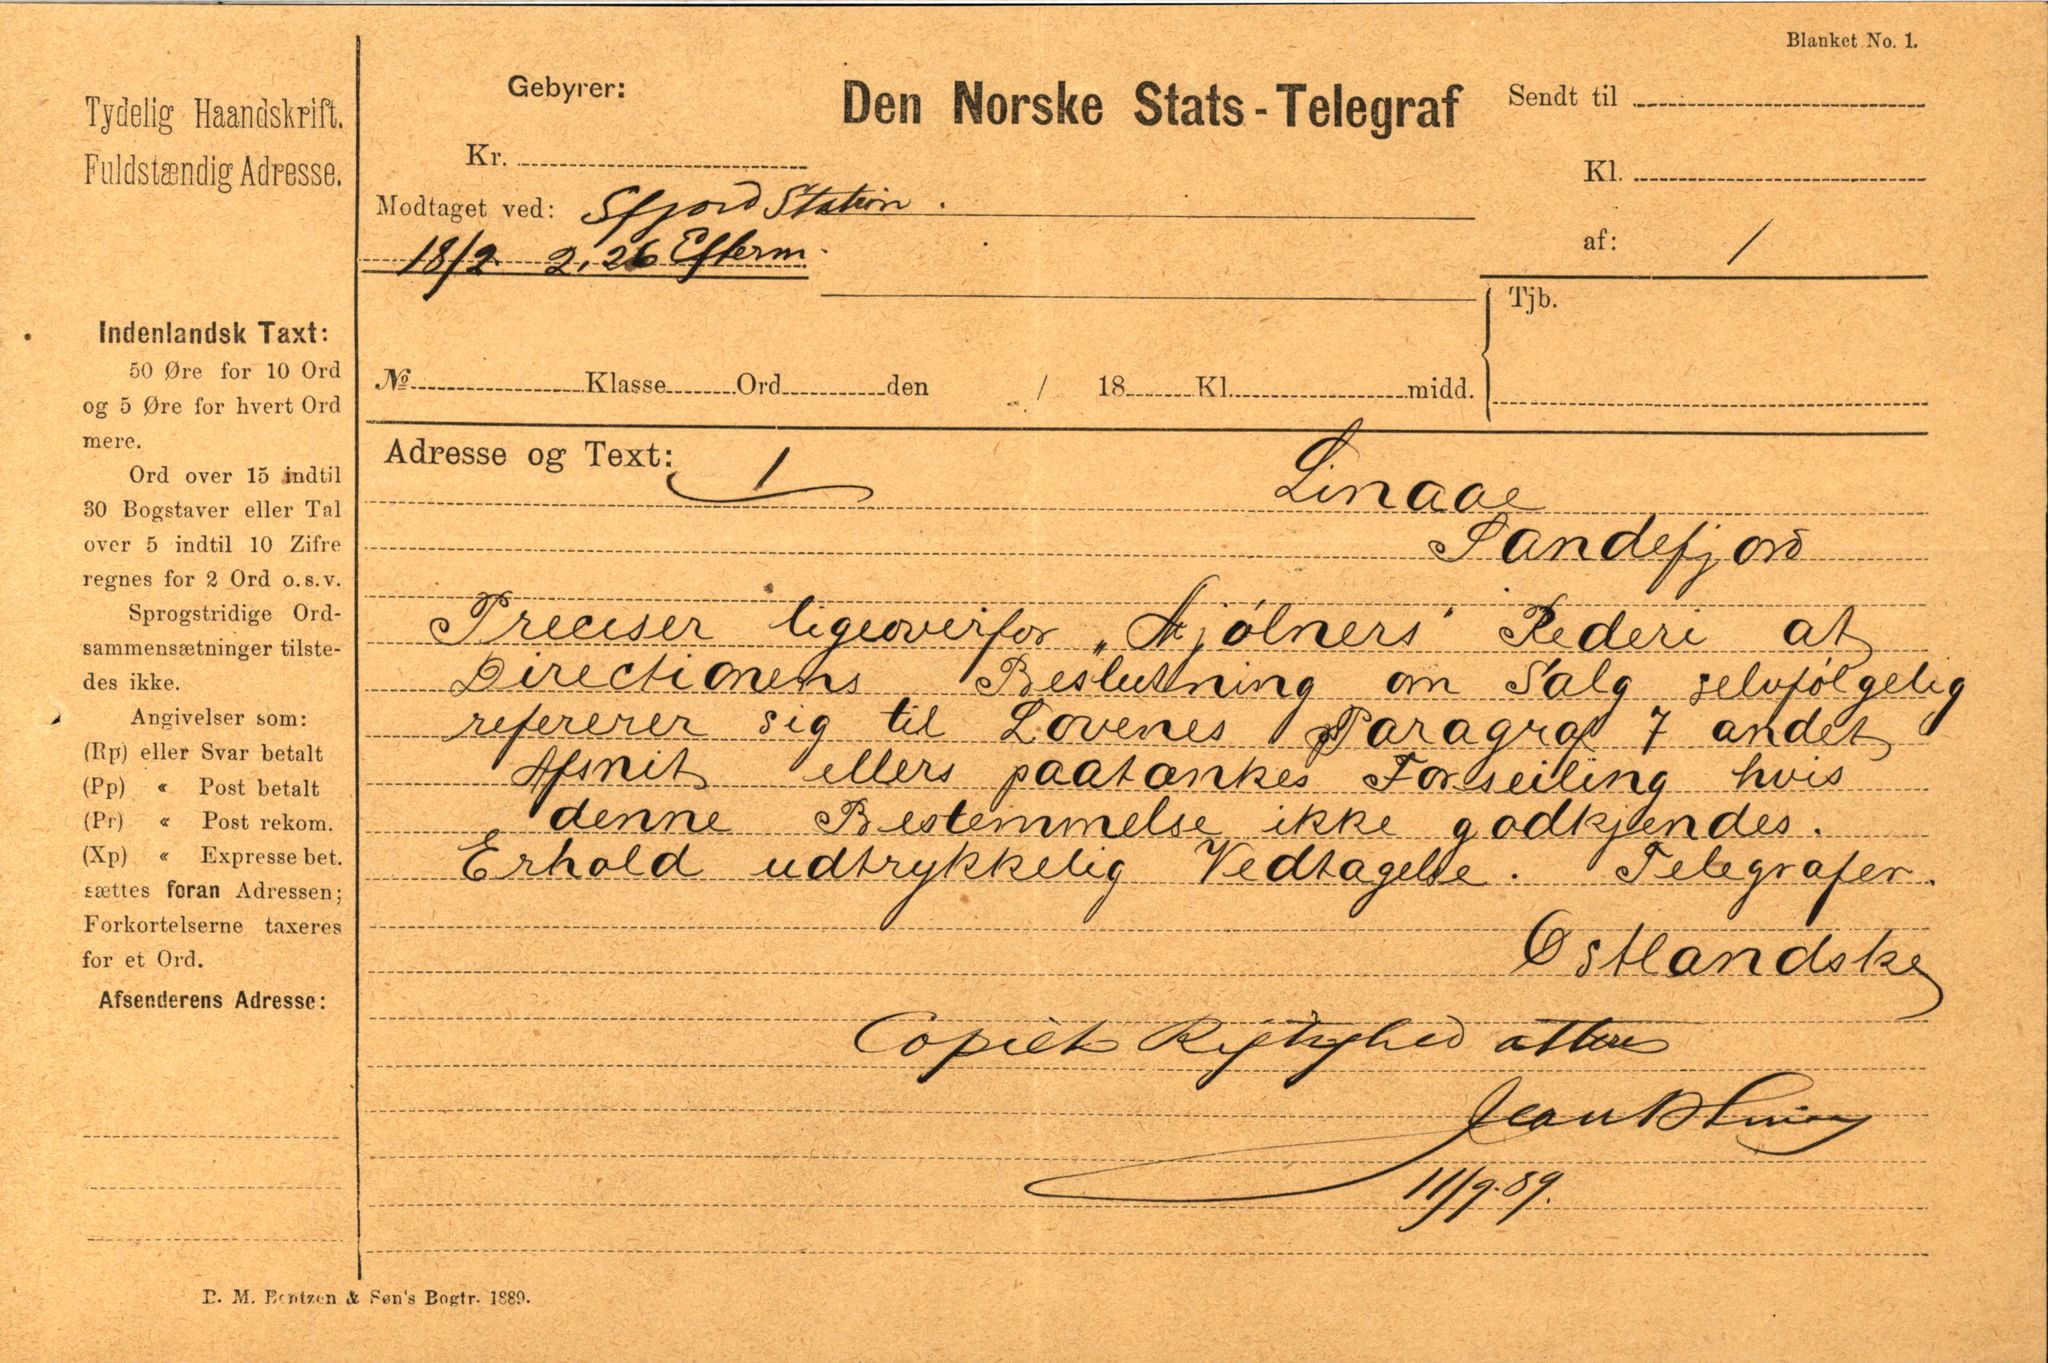 Blanket No. 1.
Tydelig Haandskrift.
Fuldstændig Adresse.
Gebyrer:
Kr.
Den Norske Stats-Telegraf
Sendt til
Kl.
af: /
Modtaget ved: Sfjord Station.
18/2 2,26 Efterm.
Tjb.
№ Klasse Ord den / 18 Kl. midd.
Indenlandsk Taxt:
50 Øre for 10 Ord
og 5 Øre for hvert Ord
mere.
Ord over 15 indtil
30 Bogstaver eller Tal
over 5 indtil 10 Zifre
regnes for 2 Ord o.s.v.
Sprogstridige Ord-
sammensætninger tilste-
des ikke.
Angivelser som:
(Rp) eller Svar betalt
(Pp) « Post betalt
(Pr) « Post rekom.
(Xp) « Expresse bet.
sættes foran Adressen;
Forkortelserne taxeres
for et Ord.
Afsenderens Adresse:
Adresse og Text: 1
Linaae
Sandefjord
Preciser ligeoverfor „Mjølners" Rederi at
Directionens Beslutning om Salg selvfølgelig
refererer sig til Lovenes Paragraf 7 andet
Afsnit ellers paatænkes Forseiling hvis
denne Bestemmelse ikke godkjendes.
Erhold udtrykkelig Vedtagelse. Telegrafer.
Østlandske
Copiets Rigtighed attere
11/9.89.
B. M. Bentzen & Søn's Bogtr. 1889.